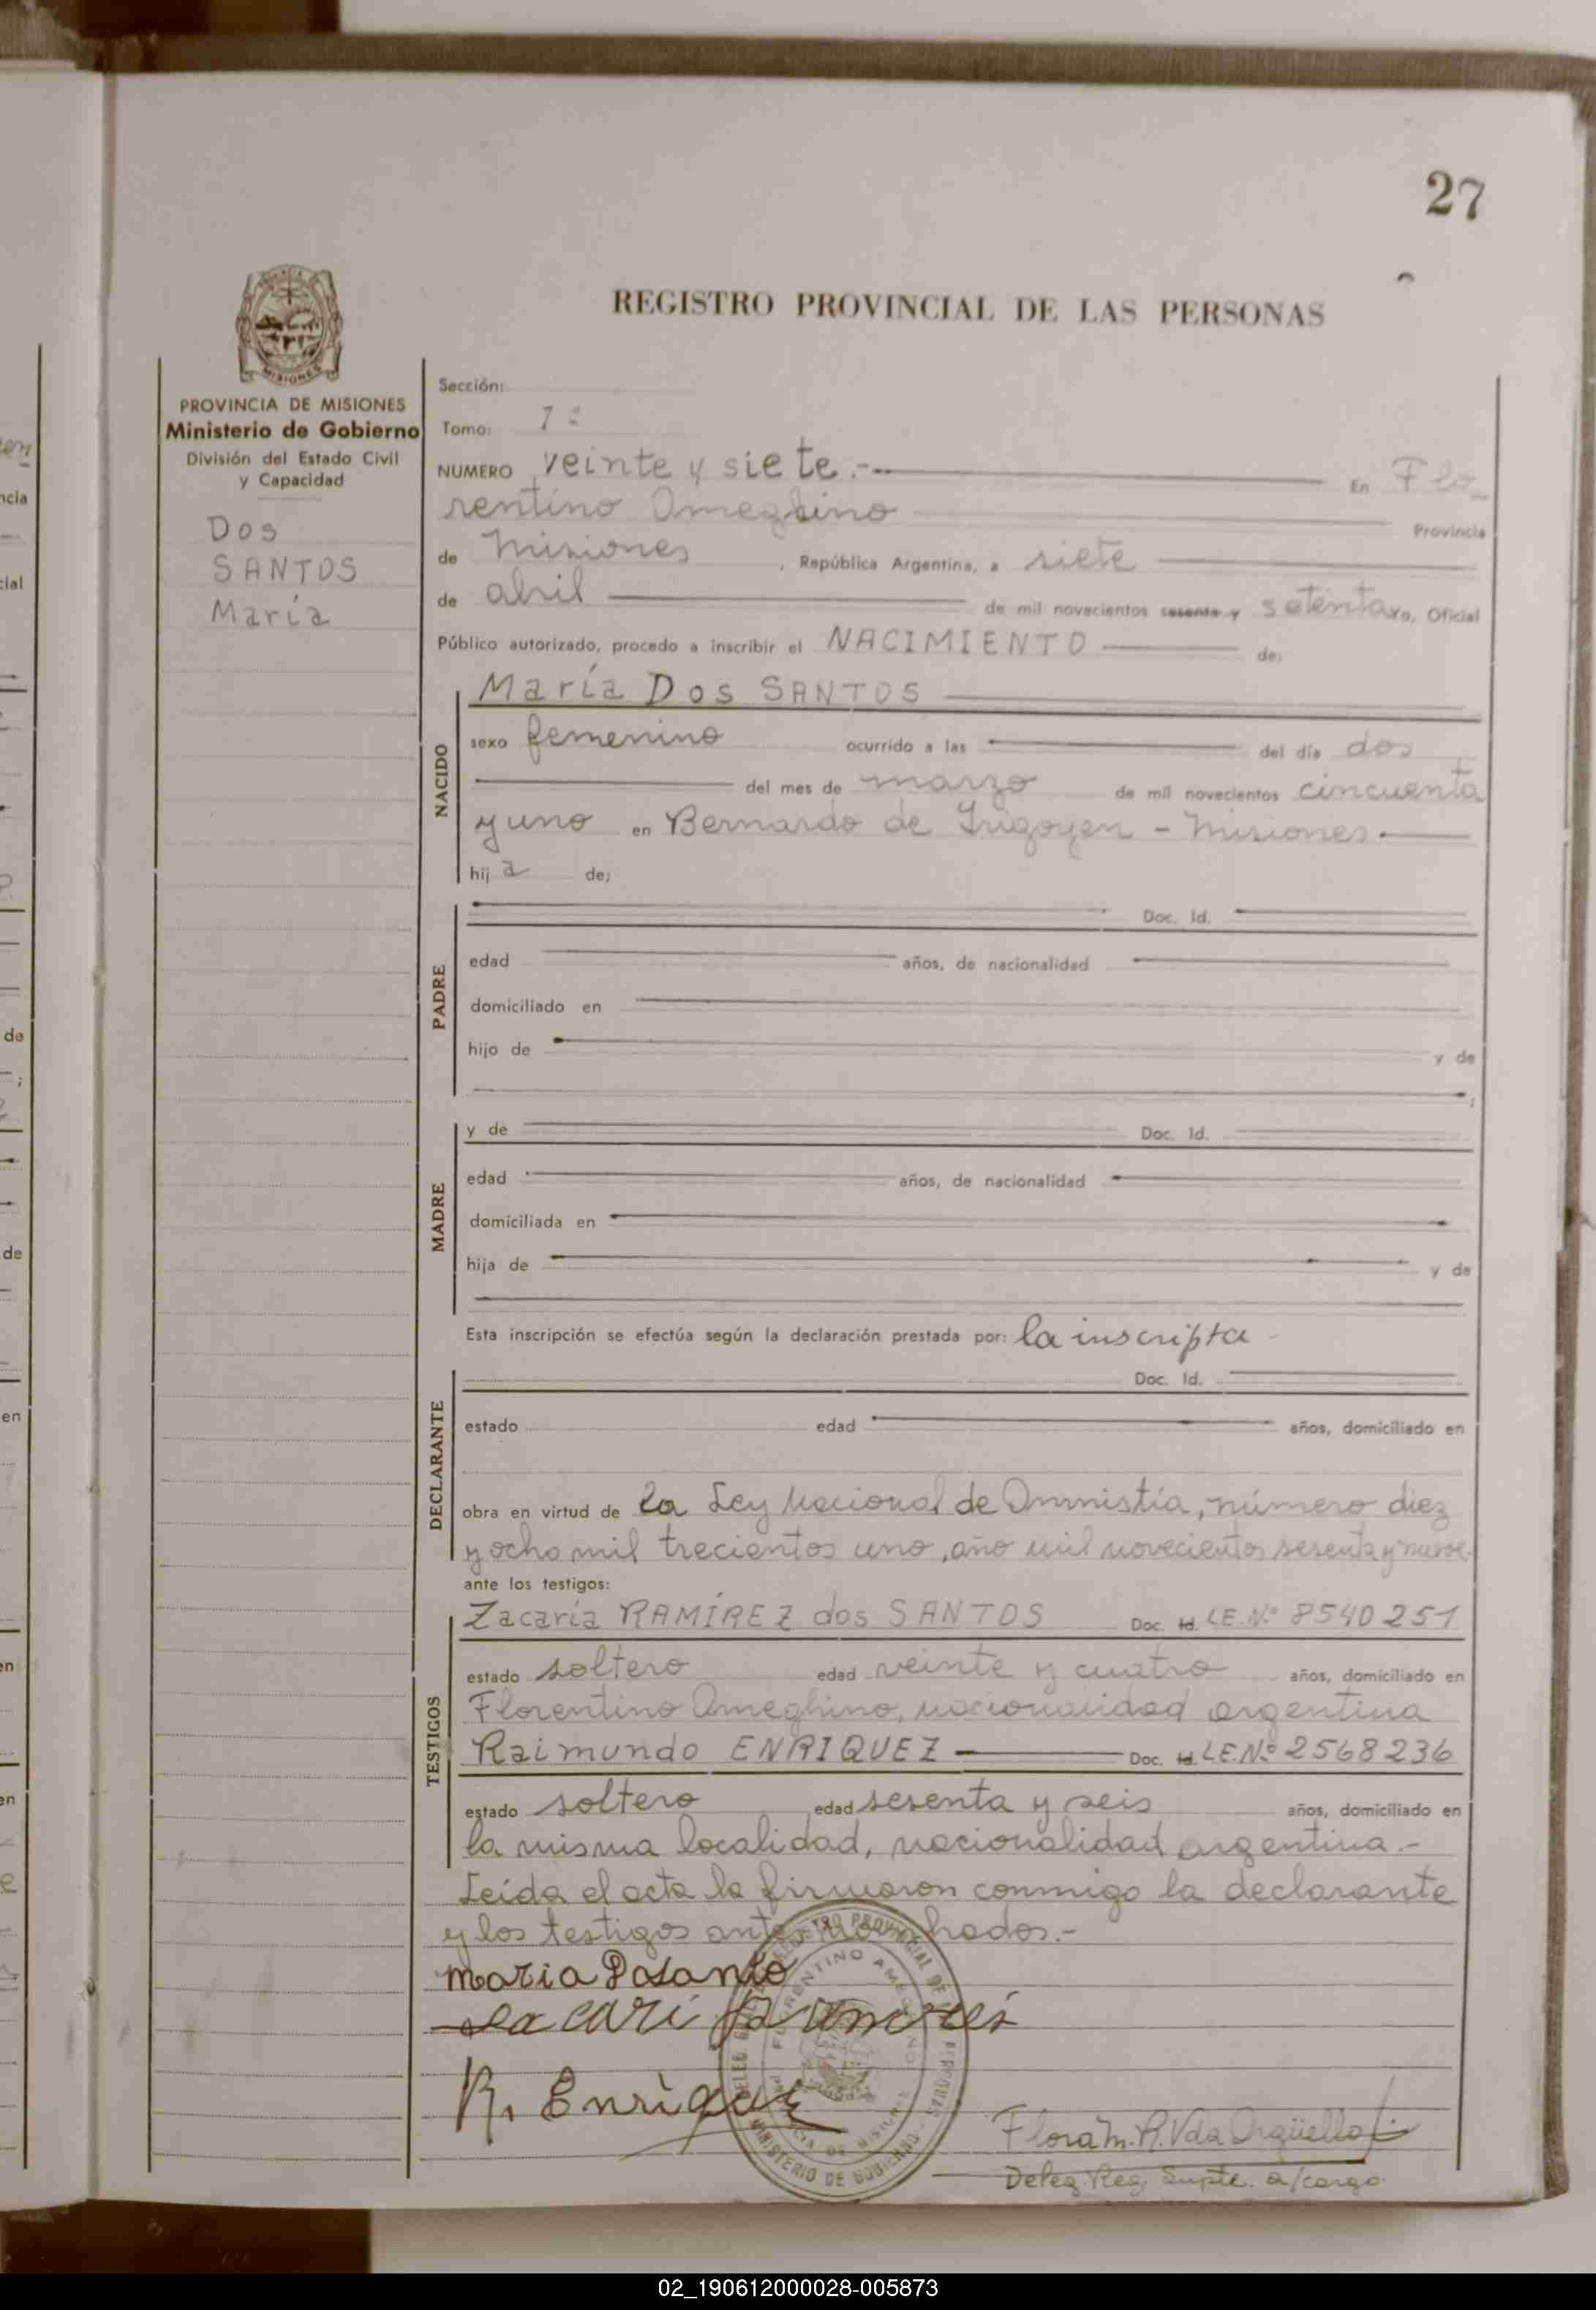 27
REGISTRO PROVINCIAL DE LAS PERSONAS
MISIONES
PROVINCIA DE MISIONES
Ministerio de Gobierno
División del Estado Civil
y Capacidad
Dos
SANTOS
María
Sección:
Tomo: 1º
NUMERO veinte y siete.- En Flo
rentino Ameghino Provincia
de Misiones, República Argentina, a siete
de abril de mil novecientos sesenta y setenta, yo, Oficial
Público autorizado, procedo a inscribir el NACIMIENTO de:
NACIDO
María Dos SANTOS
sexo femenino ocurrido a las del día dos
del mes de marzo de mil novecientos cincuenta
y uno en Bernardo de Irigoyen - Misiones.
hij a de;
PADRE
Doc. Id.
edad años, de nacionalidad
domiciliado en
hijo de y de
;
MADRE
y de Doc. Id.
edad años, de nacionalidad
domiciliada en
hija de y de
Esta inscripción se efectúa según la declaración prestada por: la inscripta -
DECLARANTE
Doc. Id.
estado edad años, domiciliado en
obra en virtud de la Ley Nacional de Amnistía, número diez
y ocho mil trecientos uno, año mil novecientos sesenta y nueve.
ante los testigos:
TESTIGOS
Zacaría RAMÍREZ dos SANTOS Doc. Id. L.E.Nº 8540251
estado soltero edad veinte y cuatro años, domiciliado en
Florentino Ameghino, nacionalidad argentina
Raimundo ENRIQUEZ Doc. Id. L.E.Nº 2568236
estado soltero edad sesenta y seis años, domiciliado en
la misma localidad, nacionalidad argentina.-
Leída el acta la firmaron conmigo la declarante
y los testigos
maria
R. Enriquez
FLORENTINO AMEGHINO
MINISTERIO DE GOBIERNO
Flora M. R. Vda Argüello
Deleg. Reg. Supte. a/cargo.
02_190612000028-005873